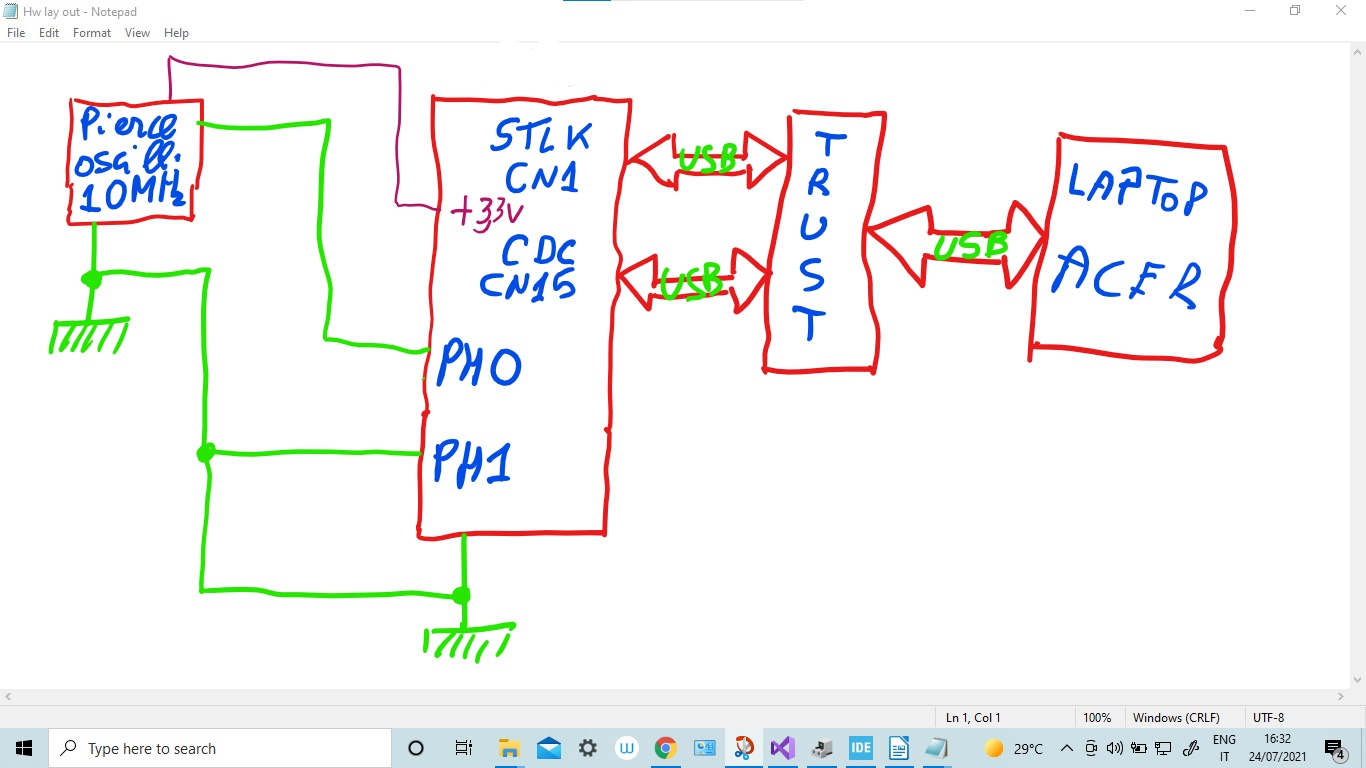 Hw lay out - Notepad
File Edit Format View Help
Pierce
oscill.
10MHz
STLK
CN1
+33V
CDC
CN15
PH0
PH1
USB
USB
TRUST
USB
LAPTOP
ACER
Ln 1, Col 1
100%
Windows (CRLF)
UTF-8
Type here to search
W
IDE
29°C
ENG
IT
16:32
24/07/2021
4